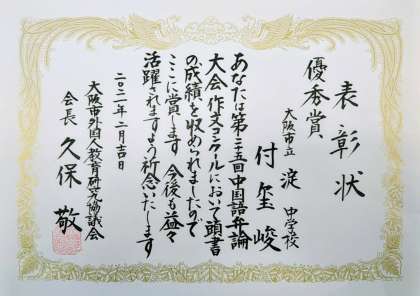 表彰状
優秀賞
大阪市立 淀 中学校
付 玺峻
あなたは第三五回中国語弁論
大会作文コンクールにおいて頭書
の成績を収められましたので
ここに賞します 今後も益々
活躍されますよう祈念いたします
二〇二一年二月吉日
大阪市外国人教育研究協議会
会長 久保 敬